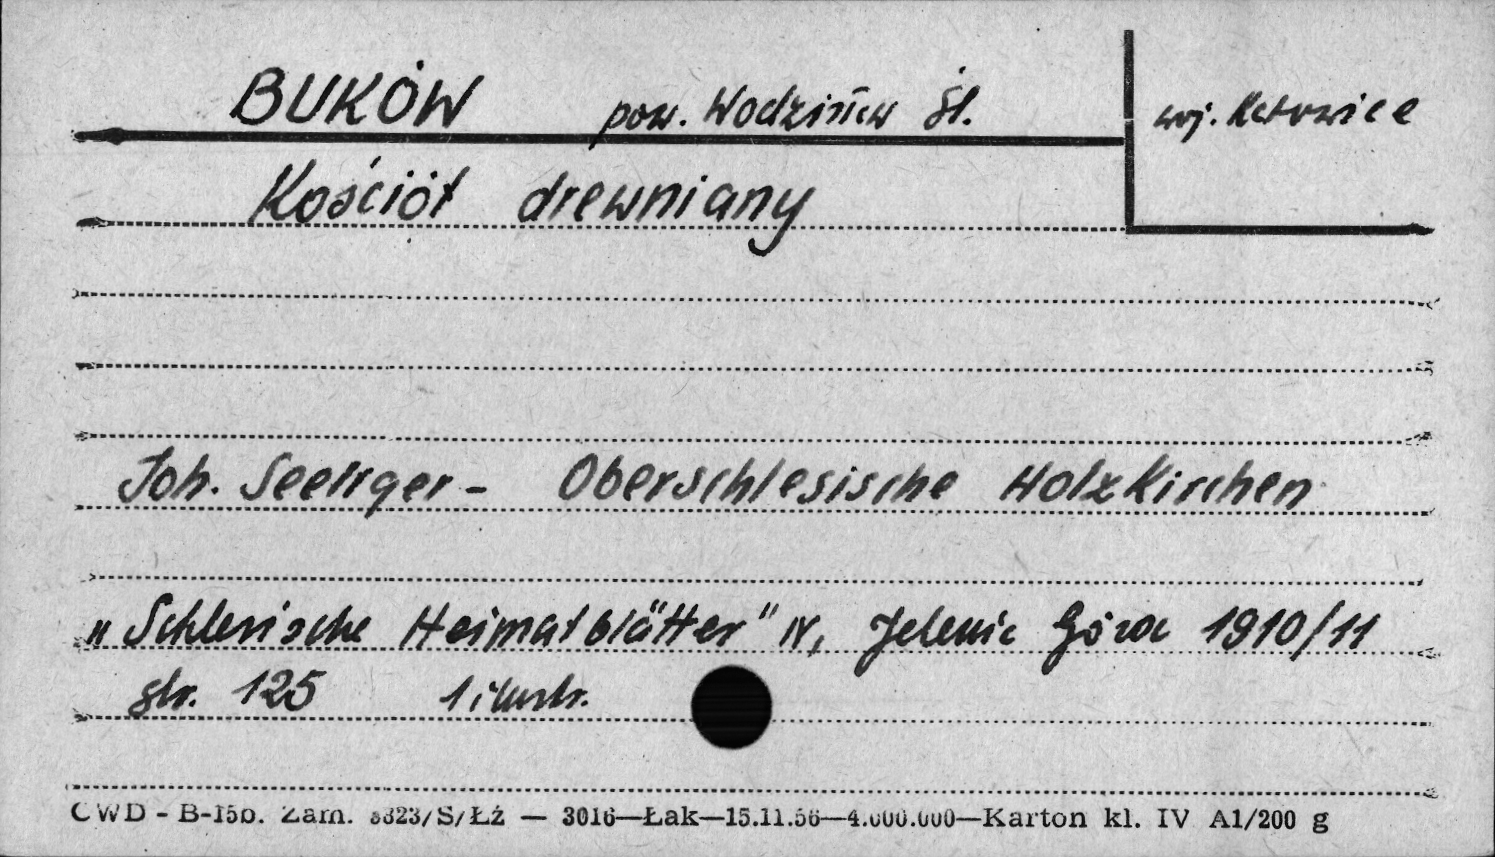 BUKÓW pow. Wodzisław Śl. woj. Katowice
Kościół drewniany
Joh. Seeliger - Oberschlesische Holzkirchen
„Schlesische Heimatblätter" IV, Jelenia Góra 1910/11
str. 125 1 ilustr.
CWD - B-15b. Zam. 8823/S/Łź — 3016—Łak—15.11.56—4.000.000—Karton kl. IV A1/200 g